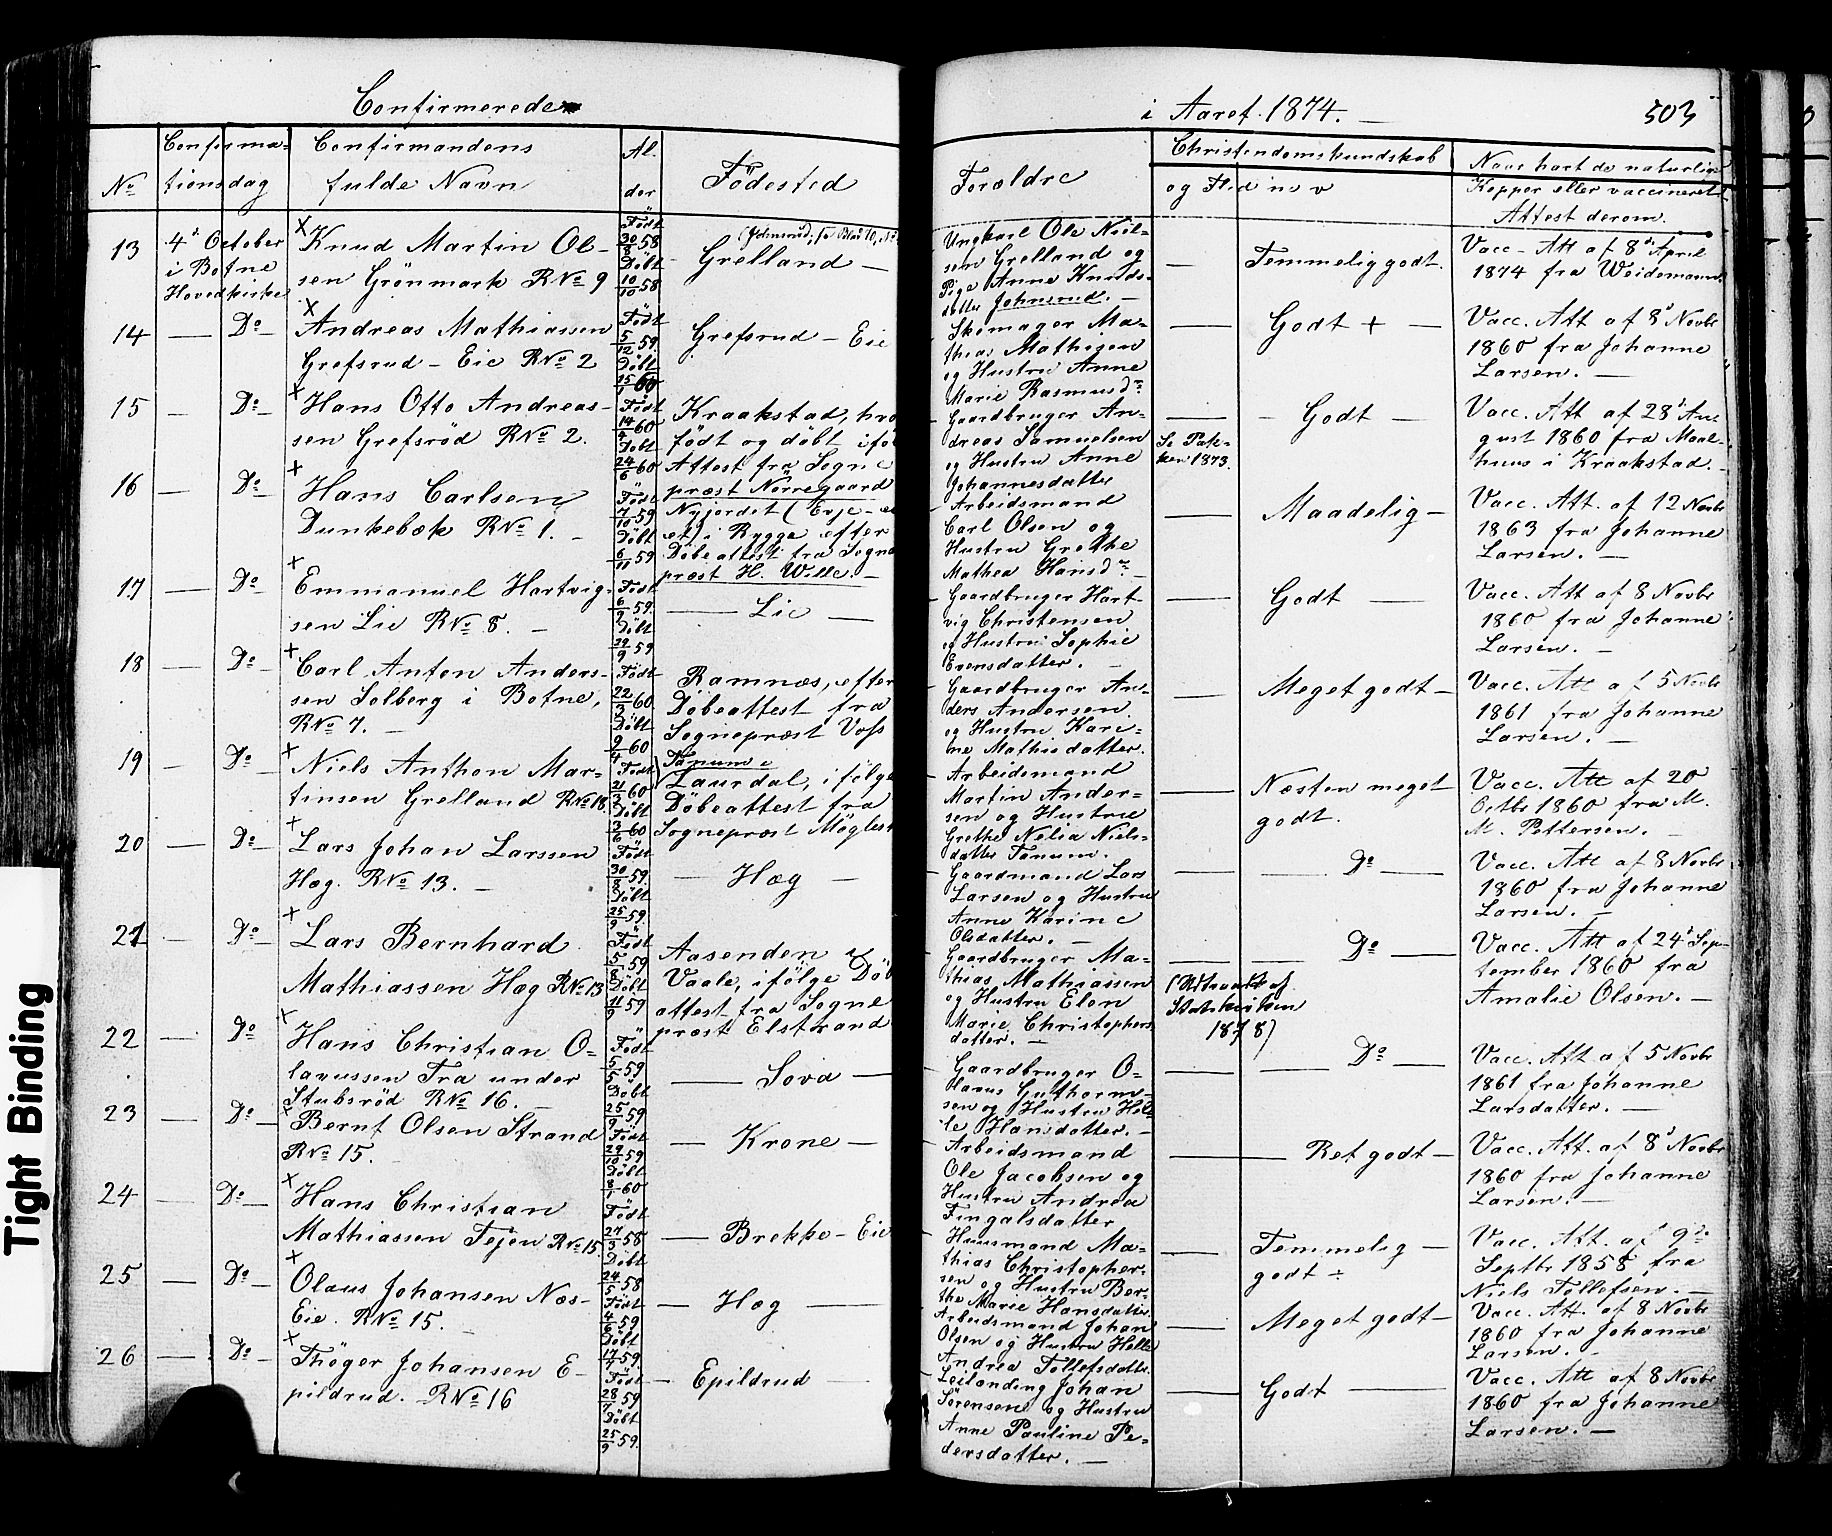 Confirmerede
i Aaret 1874. —
503
No
Confirma-
tionsdag
Confirmandens
fulde Navn
Al.
der
Födested
Foroldre
Christendomskundskab
og Flid m v
Nave havt de naturlige
Kopper eller vaccineret
Attest derom.
13
4d October
i Botne
Hovedkirke
× Knud Martin Ol-
sen Grönmark RNo 9
Födt
30/8 58
Döbt
10/10 58
Grelland —
Ungkarl Ole Niel-
sen Grelland og
Pige Anne Knuds-
datter Johnsrud. —
— Temmelig godt.
Vacc. Att af 8d April
1874 fra Weidemann
14 — Do —
× Andreas Mathiassen
Grefsrud — Eie RNo 2
Födt
5/12 59
Döbt
15/1 60
Grefsrud — Eie
Skomager Ma-
thias Mathisen
og Hustru Anne
Marie Rasmusdr
— Godt + —
Vacc. Att af 8d Novbr
1860 fra Johanne
Larsen. —
15 — Do —
× Hans Otto Andreas-
sen Grefsröd RNo 2.
Födt
14/4 60
Döbt
24/6 60
Kraakstad, hvo
född og döbt ifö
Attest fra Sogne
præst Nørregaard
Gaardbruger An-
dreas Samuelsen
og Hustru Anne
Johannesdatter
Se Pak-
ken 1873.
— Godt —
Vacc. Att af 28d Au-
gust 1860 fra Maal-
huus i Kraakstad. —
16 — Do —
× Hans Carlsen
Dunkebæk RNo 1. —
Födt
7/10 59
Döbt
6/11 59
Nyjordet (Evje-
et) i Rygge efter
Döbeattest fra Sogne
præst H. Wille. —
Arbeidsmand
Carl Olsen og
Hustru Grethe
Mathea Hansdr. —
— Maadelig —
Vacc. Att. af 12 Novbr
1863 fra Johanne
Larsen. —
17 — Do —
× Emmanuel Hartvig-
sen Lie RNo 8. —
Födt
6/7 59
Döbt
22/9 59
— Lie —
Gaardbruger Hart-
vig Christensen
og Hustru Sophie
Evensdatter. —
— Godt —
Vacc. Att af 8 Novbr
1860 fra Johanne
Larsen. —
18 — Do —
× Carl Anton Anders-
sen Solberg i Botne,
RNo 7. —
Födt
22/2 60
Döbt
9/4 60
Ramnæs, efter
Döbeattest fra
Sognepræst Voss
Gaardbruger An-
ders Andersen
og Hustru Kari-
ne Mathisdatter.
— Meget godt —
Vacc. Att af 5 Novbr
1861 fra Johanne
Larsen. —
19 — Do —
× Niels Anthon Mar-
tinsen Grelland RNo 18.
Födt
21/3 60
Döbt
3/6 60
Tanum i
Laurdal, i følge
Döbeattest fra
Sognepræst Møglest
Arbeidsmand
Martin Ander-
sen og Hustru
Grethe Nelia Niels-
datter Tanum.
— Næsten meget
godt.
Vacc. Att af 20
Octbr 1860 fra M.
M. Pettersen. —
20 — Do —
× Lars Johan Larssen
Hæg. RNo 13. —
Födt
30/8 59
Döbt
25/9 59
— Hæg —
Gaardmand Lars
Larsen og Hustru
Anne Karine
Olsdatter. —
— Do —
Vacc. Att af 8 Novbr
1860 fra Johanne
Larsen. —
21 — Do —
× Lars Bernhard
Mathiassen Hæg RNo 13
Födt
5/8 59
Döbt
11/9 59
Aasenden i
Vaale, ifölge Döb
attest fra Sogne
præst Elstrand
Gaardbruger Ma-
thias Mathiassen
og Hustru Elen
Marie Christophers
datter. —
(Udtraadt af
Statskirken
1878)
— Do —
Vacc. Att af 24d Sep-
tember 1860 fra
Amalie Olsen. —
22 — Do —
× Hans Christian O-
lavussen Fra under
Stubsröd RNo 16. —
Födt
5/5 59
Döbt
25/9 59
— Sova —
Gaardbruger O-
lavus Guthorm-
sen og Hustru Hel-
le Hansdatter. —
— Do —
Vacc. Att af 5 Novbr
1861 fra Johanne
Larsdatter. —
23 — Do —
× Bernt Olsen Strand
RNo 15.
Födt
29/10 59
Döbt
8/1 60
— Krone —
Arbeidsmand
Ole Jacobsen og
Hustru Andrea
Fingalsdatter
— Ret godt —
Vacc. Att. af 8d Novbr
1860 fra Johanne
Larsen. —
24 — Do —
× Hans Christian
Mathiassen Tejen RNo 15.
Födt
27/3 58
Döbt
24/5 58
— Brekke — Eie
Huusmand Ma-
thias Christopher-
sen og Hustru Ber-
the Marie Hansdatter
— Temmelig —
godt ÷
Vacc. Att. af 9de
Septbr 1858 fra
Niels Tollefsen. —
25 — Do —
× Olaus Johansen Næs-
Eie. RNo 15. —
Födt
4/6 59
Döbt
17/7 59
— Hæg —
Arbeidsmand Johan
Olsen og Hustru Helle
Andrea Tollefsdatter
— Meget godt —
Vacc. Att. af 8 Novbr
1860 fra Johanne
Larsen. —
26 — Do —
× Thöger Johansen E-
pildrud. RNo 16
Födt
28/7 59
Döbt
25/9 59.
— Epildrud —
Leilænding Johan
Sörensen og Hustru
Anne Pauline Pe-
dersdatter. —
— Godt —
Vacc. Att af 8 Novbr
1860 fra Johanne
Larsen. —
Tight Binding